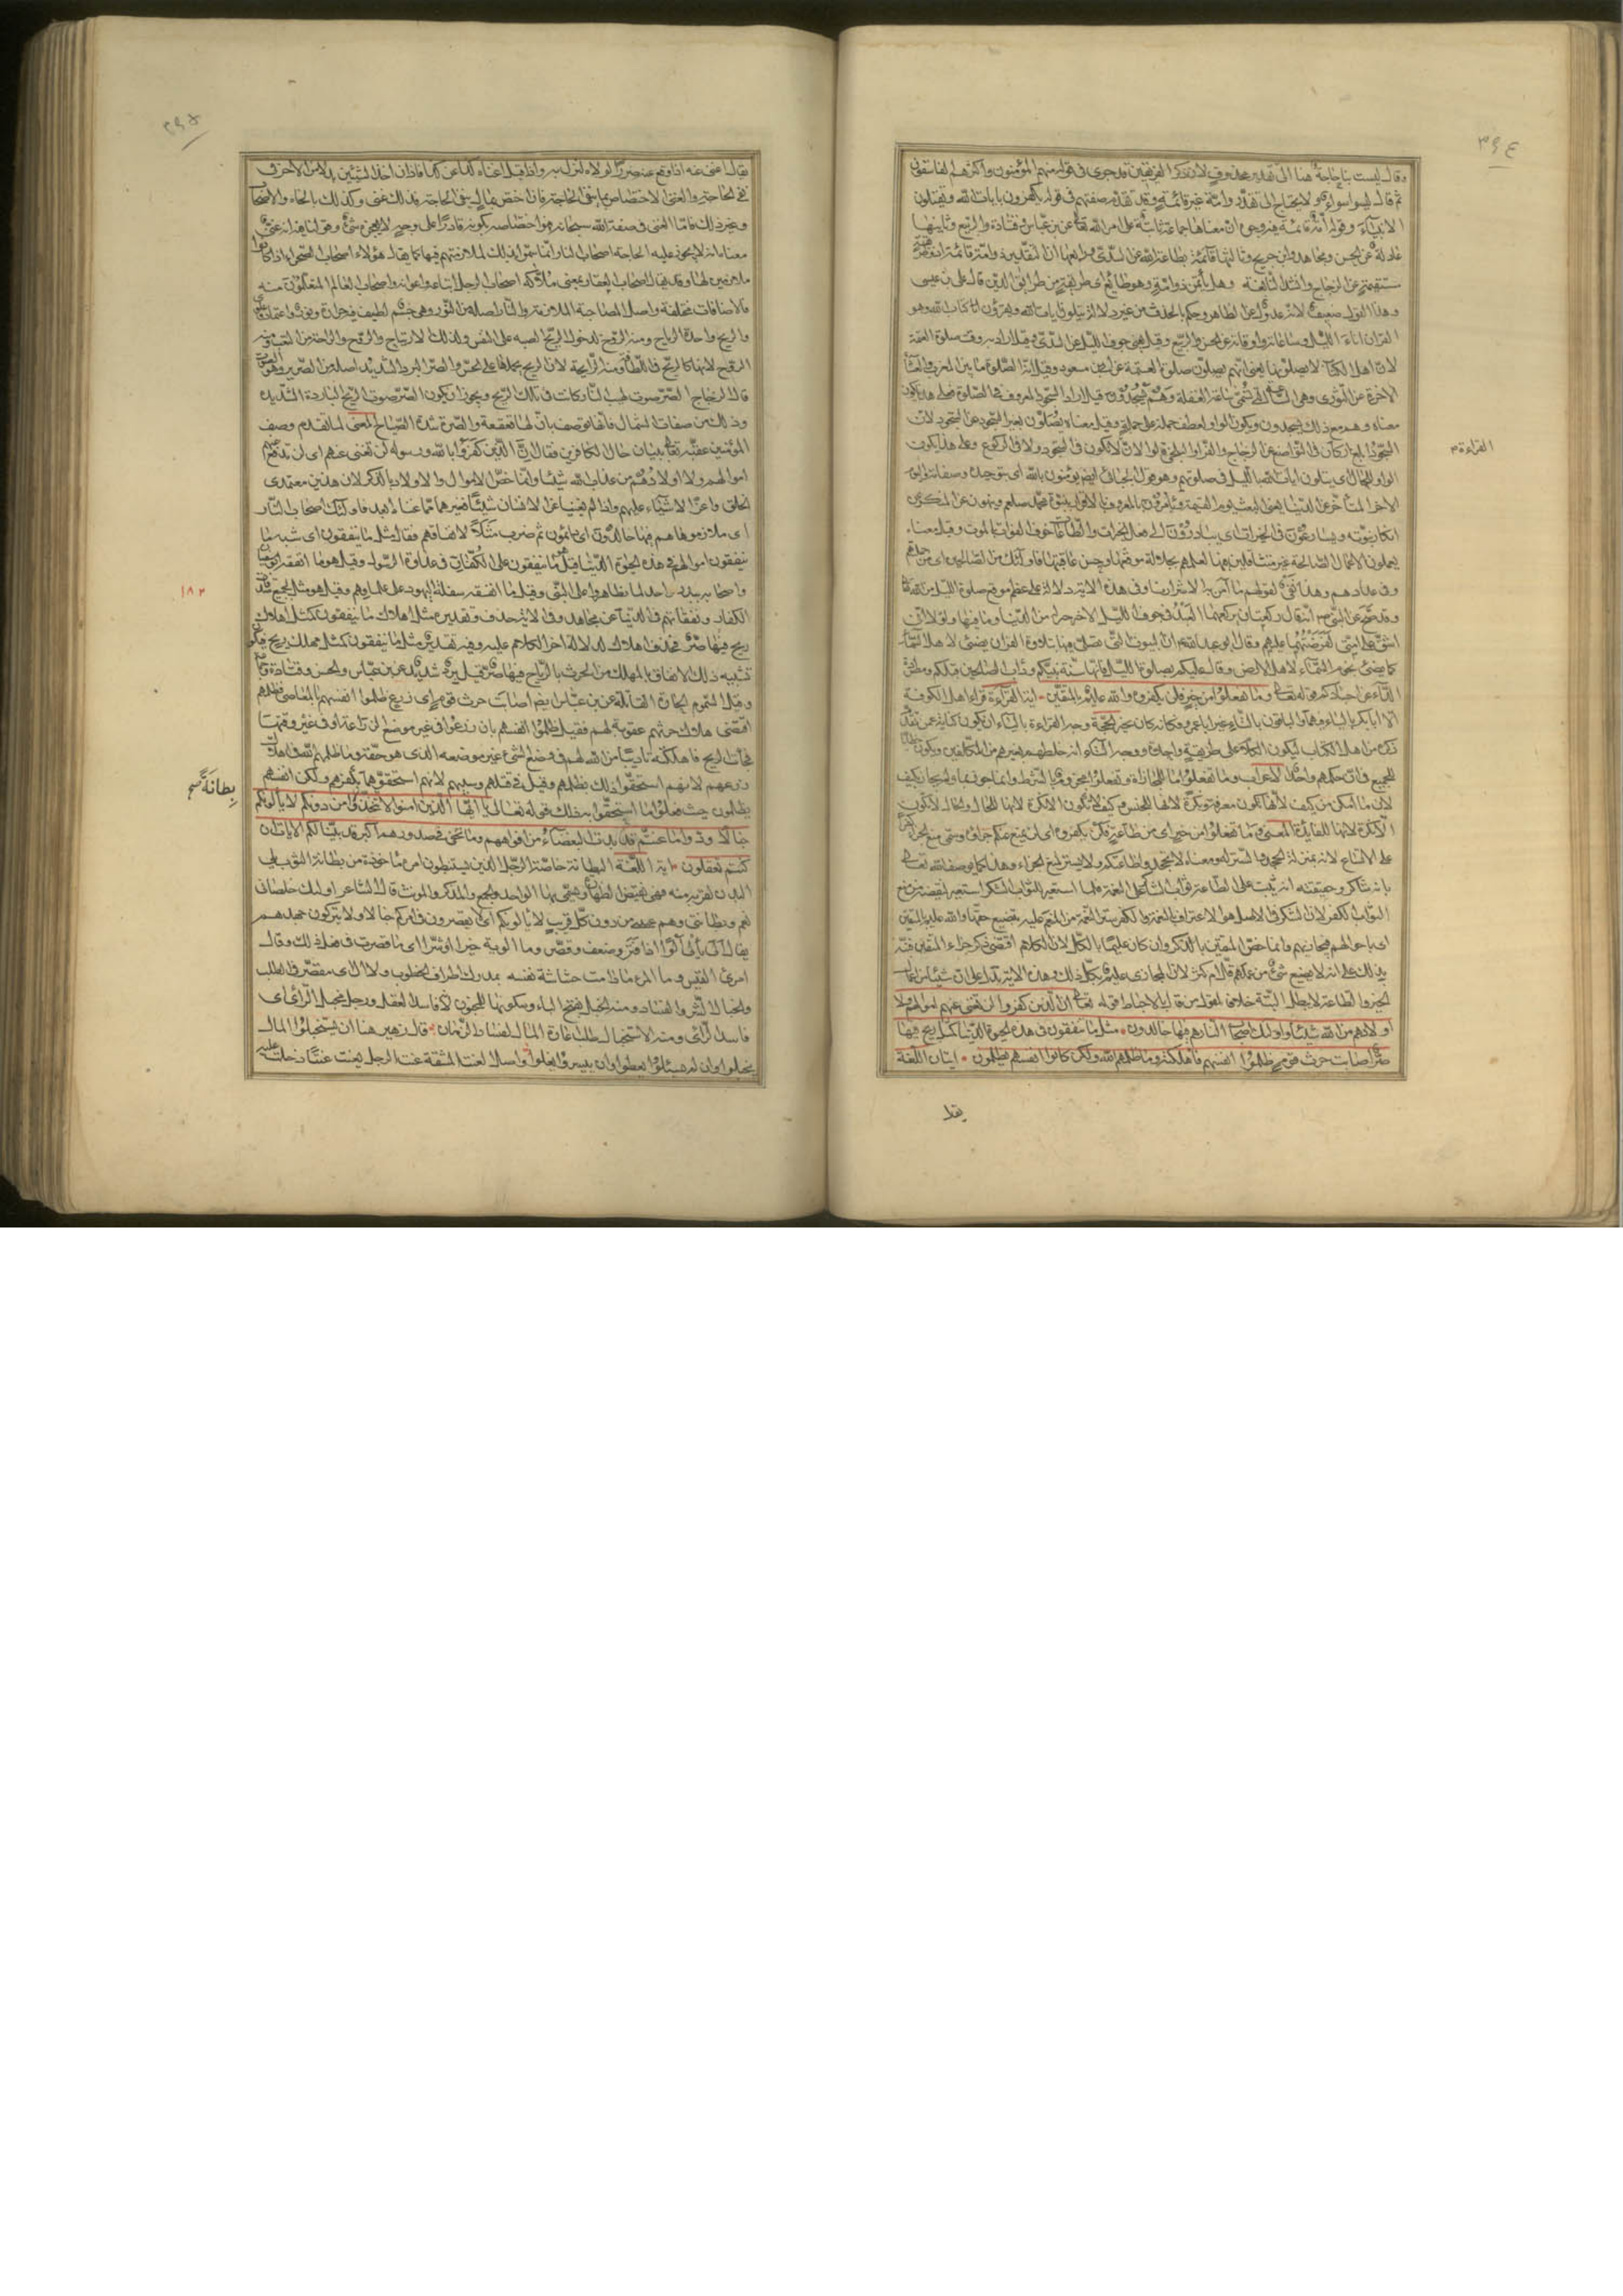 ٣٩٤
وقال ليست بنا حاجة هنا الى تقدير محذوف لان ذكر الفريقين قد جرى في قوله منهم المؤمنون واكثرهم الفاسقون
ثم قال ليسوا سواء فهو لا يحتاج الى تقدير وامة غير قائمة وقد تقدم صفتهم في قوله يكفرون بايات الله ويقتلون
الانبياء وقوله امة قائمة فيه وجوه ان معناها جماعة ثابتة على امر الله تعالى عن ابن عباس وقتادة والربيع وثانيها
عادلة عن الحسن ومجاهد وابن جريج وثالثها قائمة بطاعة الله عن السدي ورابعها ان التقدير ذو امة قائمة اي ذو طريقة
مستقيمة عن الزجاج وانشد للنابغة وهل يأثمن ذو امة وهو طائع اي طريقة من طرائق الدين قال علي بن عيسى
وهذا القول ضعيف لانه عدول عن الظاهر وحكم بالحذف من غير دلالة يتلون ايات الله اي يقرؤن كتاب الله وهو
القران اناء الليل وساعاته واوقاته عن الحسن والربيع وقيل يعني جوف الليل عن السدي وقيل اراد به وقت صلوة العتمة
لان اهل الكتاب لا يصلونها يعني انهم يصلون صلوة العتمة عن ابن مسعود وقيل انه الصلوة ما بين المغرب والعشاء
الاخرة عن الثوري وهي الساعة التي تسمى ساعة الغفلة وهم يسجدون قيل اراد السجود المعروف في الصلوة فعلى هذا يكون
معناه وهم مع ذلك يسجدون ويكون الواو لعطف جملة على جملة وقيل معناه يصلون بعبر السجود عن السجود لان
السجود ابلغ اركان في التواضع عن الزجاج والفراء والبلخي قالوا لان التلاوة لا تكون في السجود ولا في الركوع وعلى هذا يكون
الواو للحال اي يتلون ايات الله بالليل في صلوتهم وهو قول الجبائي ايضا يؤمنون بالله اي بتوحيده وصفاته واليوم
الاخر المتأخر عن الدنيا يعني البعث يوم القيمة ويأمرون بالمعروف بالاقرار بنبوة محمد صلعم وينهون عن المنكر عن
انكار نبوته ويسارعون في الخيرات اي يبادرون الى فعل الخيرات والطاعات خوف الفوات بالموت وقيل معناه
يعملون الاعمال الصالحة غير متثاقلين فيها لعلمهم بجلالة موقعها وحسن عاقبتها واولئك من الصالحين اي من جملتهم
وفي عدادهم وهذا نفي لقولهم ما آمن به الا شرارنا وفي هذه الاية دلالة على عظم موقع صلوة الليل من الله تعالى
وقد صح عن النبي ص انه قال ركعتان يركعهما العبد في جوف الليل الاخر خير له من الدنيا وما فيها ولولا ان
اشق على امتي لفرضتهما عليهم وقال ابو عبد الله ع ان البيوت التي تصلى فيها بتلاوة القران يضيئ لاهل السماء
كما يضيئ نجوم السماء لاهل الارض وقال عليكم بصلوة الليل فانها سنة نبيكم وداب الصالحين قبلكم ومطردة
الداء عن اجسادكم قوله تعالى وما تفعلوا من خير فلن يكفروه والله عليم بالمتقين ٭ اية القراءة قرأ اهل الكوفة
الا ابا بكر بالياء فيهما والباقون بالتاء غير ابا عمرو فكان يخير الحجة وجه القراءة بالياء ان يكون كناية عن تقدم
ذكره من اهل الكتاب ليكون الكلام على طريقة واحدة ووجه التاء انه خلطهم بغيرهم من المكلفين ويكون خطابا
للجميع في ان حكمهم واحد الاعراب وما تفعلوا ما للمجازاة وتفعلوا مجزوم بالشرط وانما جوزي بما ولم يجاز بكيف
لان ما امكن من كيف لانها تكون معرفة ونكرة لانها للجنس وكيف لا تكون الا نكرة لانها للحال والحال لا يكون
الا نكرة لانها للفايدة المعنى وما تفعلوا من خير اي من طاعة فلن يكفروه اي لن يمنع عنكم جزاؤه وسمي منع الجزاء كفرا
على الاتساع لانه بمنزلة الجحد والستر له ومعناه لا يجحد طاعتكم ولا يستر بمنع الجزاء وهذا كما يوصف الله تعالى
بانه شاكر وحقيقته انه يثيب على الطاعة ثواب الشاكر على النعمة فلما استعير للثواب الشكر استعير لنقيضه من منع
الثواب الكفر لان الشكر في الاصل هو الاعتراف بالنعمة والكفر ستر النعمة من المنعم عليه بتضييع حقها والله عليم بالمتقين
اي باحوالهم فيجازيهم وانما خص المتقين بالذكر وان كان عليما بالكل لان الكلام اقتضى ذكر جزاء المتقين فنبه
بذلك على انه لا يضيع شيئ من عملهم قل ام كثر لان المجازي عليم بكل ذلك وهذه الاية تدل على ان شيئا من اعمال
الخير والطاعة لا يبطل البتة خلاف لقول من قال بالاحباط قوله تعالى ان الذين كفروا لن تغني عنهم اموالهم ولا
اولادهم من الله شيئا واولئك اصحاب النار هم فيها خالدون ٭ مثل ما ينفقون في هذه الحيوة الدنيا كمثل ريح فيها
صر اصابت حرث قوم ظلموا انفسهم فاهلكته وما ظلمهم الله ولكن كانوا انفسهم يظلمون ٭ ايتان اللغة
القراءة
يقال
٣٩٥
يقال اغنى عنه اذا دفع عنه ضررا لولاه لنزل به واذا قيل اغناه كذا عن كذا فاذا ان احد الشيئين بدلا من الاخر في
نفي الحاجة والغنى الاختصاص بما ينفي الحاجة فان اختص بمال ينفي الحاجة فذلك غنى وكذلك بالجاه والاصحاب
وغير ذلك فاما الغنى في صفة الله سبحانه فهو اختصاصه بكونه قادرا على وجه لا يعجزه شيئ وقولنا فيه انه غني
معناه انه لا يجوز عليه الحاجة اصحاب النار انما سموا بذلك لملازمتهم فيها كما يقال هؤلاء اصحاب الصحراء اذا كانوا
ملازمين لها وقد يقال اصحاب العقار بمعنى ملاكه اصحاب الرجل اتباعه واعوانه واصحاب العالم المتعلمون منه
فالاضافات مختلفة واصل المصاحبة الملازمة والنار اصله من النور وهي جسم لطيف فيه حرارة ونور واعتماد علوي
والريح واحدة الرياح ومنه الروح لدخول الريح الطيبة على النفس وكذلك الارتياح والروح والراحة من التعب ومنه
الروح لانها كالريح في اللطافة ومنه الرايحة لان الريح يحملها على الحس والصر البرد الشديد اصله من الصرير وهو الصوت
قال الزجاج الصر صوت لهب النار كانت في تلك الريح ويجوز ان يكون الصر صوت الريح الباردة الشديدة
وذلك من صفات الشمال فانها توصف بان لها قعقعة والصرة شدة الصياح المعنى لما تقدم وصف
المؤمنين عقبه تعالى ببيان حال الكافرين فقال ان الذين كفروا بالله ورسوله لن تغني عنهم اي لن تدفع عنهم
اموالهم ولا اولادهم من عذاب الله شيئا وانما خص الاموال والاولاد بالذكر لان هذين معتمدى
الخلق واعز الاشياء عليهم واذا لم يغنيا عن الانسان شيئا فغيرهما غناه ابعد واولئك اصحاب النار
اي ملازموها هم فيها خالدون اي دائمون ثم ضرب مثلا لانفاقهم فقال مثل ما ينفقون اي شبه ما
ينفقون اموالهم في هذه الحيوة الدنيا قيل ما ينفقون على الكفار في عداوة الرسول وقيل هو ما انفقه ابو سفيان
واصحابه ببدر واحد لما تظاهروا على النبي وقيل ما انفقه سفلة اليهود على علمائهم وقيل هو مثل لجميع صدقات
١٨٢
الكفار ونفقاتهم في الدنيا عن مجاهد وفي الاية حذف وتقديره مثل اهلاك ما ينفقون كمثل اهلاك
ريح فيها صر فحذف اهلاك لدلالة اخر الكلام عليه وفيه تقدير مثل ما ينفقون كمثل مهلك ريح فيكون
تشبيه ذلك الانفاق بالمهلك من الحرث بالرياح فيها صر قيل برد شديد عن ابن عباس والحسن وقتادة وغيرهم
وقيل السموم الحارة القاتلة عن ابن عباس ايضا اصابت حرث قوم اي زرع ظلموا انفسهم بالمعاصي فظلمهم
اقتضى هلاك حرثهم عقوبة لهم فقيل ظلموا انفسهم بان زرعوا في غير موضع الزراعة او في غير وقتها
فجاءت الريح فاهلكته تاديبا من الله لهم في وضع الشيئ غير موضعه الذي هو حقه وما ظلمهم الله في اهلاك
زرعهم لانهم استحقوا ذلك بظلمهم وقيل في قتلهم وسبيهم لانهم استحقوهما بكفرهم ولكن انفسهم
يظلمون حيث فعلوا ما استحقوا به ذلك قوله تعالى يا ايها الذين امنوا لا تتخذوا من دونكم لا يألونكم
بطانة صح
خبالا ودوا ما عنتم قد بدت البغضاء من افواههم وما تخفي صدورهم اكبر قد بينا لكم الايات ان
كنتم تعقلون ٭ اية اللغة البطانة خاصة الرجل الذين يستبطنون امره ماخوذة من بطانة الثوب الذي يلي
البدن لقربه منه فهي نقيض الظهارة ويسمى بها الواحد والجمع والمذكر والمونث قال الشاعر اولئك خلصاني
نعم وبطانتي وهم عيبتي من دون كل قريب لا يألونكم اي لا يقصرون في امركم خبالا ولا يتركون جهدهم
يقال الى يألوا الوا اذا فتر وضعف وقصر وما الوته خيرا او شرا اي ما قصرت في فعل ذلك وقال
امرئ القيس وما المرء ما دامت حشاشة نفسه بمدرك اطراف الخطوب ولا الى اي مقصر في الطلب
والخبال الشر والفساد ومنه الخبل بفتح الباء وسكونها للجنون لانه فاسد العقل ورجل مخبل الرائ اي
فاسد الرأى ومنه الاستخبال طلب اعارة المال لفساد الزمان ٭ قال زهير هنالك ان يستخبلوا المال
يخبلوا وان يسئلوا يعطوا وان ييسروا يغلوا واصل العنت المشقة عنت الرجل يعنت عنتا دخلت عليه